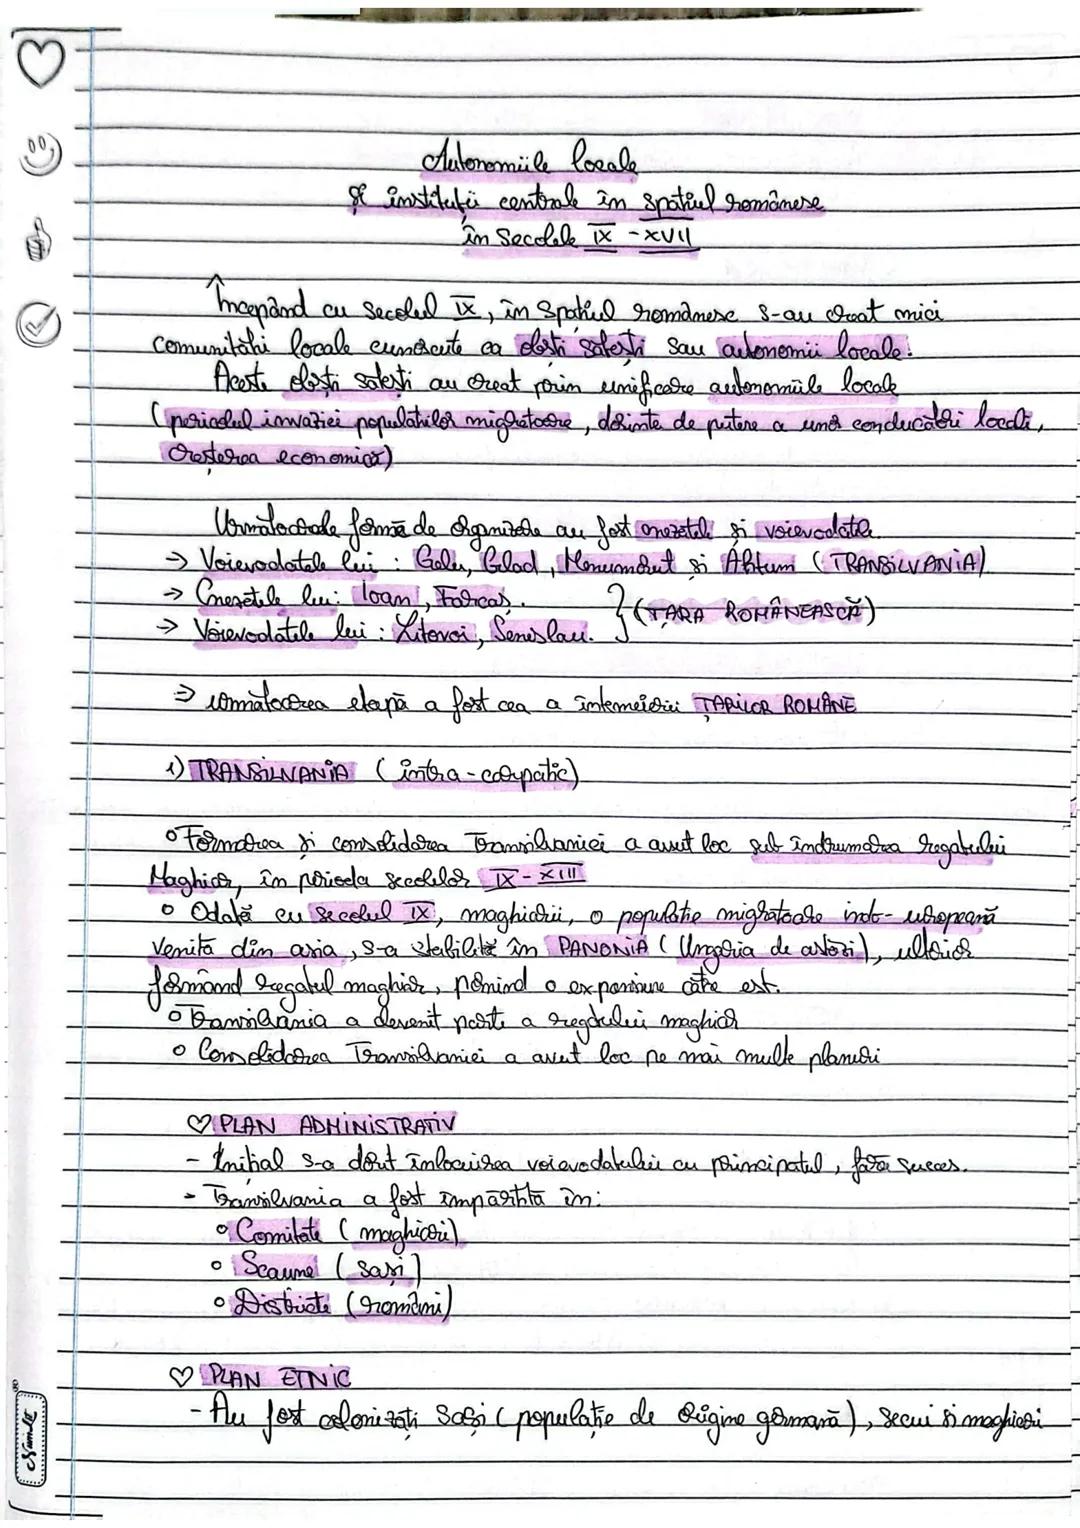 Autonomiile locale
și instituții centrale în spațiul românesc
în Secolele IX - XVII
Începând cu secolul IX, în spațiul românesc s-au creat mici
comunități locale cunoscute ca obști sătești sau autonomii locale.
Aceste obști sătești au creat prin unificare autonomiile locale
(pericolul invaziei populațiilor migratoare, dorința de putere a unor conducători locali,
creșterea economică)
Următoarele formă de organizare au fost cnezatele și voievodatele.
→ Voievodatele lui: Gelu, Glad, Menumorut și Ahtum (TRANSILVANIA)
→ Cnezatele lui: Ioan, Farcaș.
→ Voievodatele lui: Litovoi, Seneslau. } (ȚARA ROMÂNEASCĂ)
⇒ următoarea etapă a fost cea a întemeierii ȚĂRILOR ROMÂNE
1) TRANSILVANIA (intra-carpatic)
○ Formarea și consolidarea Transilvaniei a avut loc sub îndrumarea Regatului
Maghiar, în perioda secolelor IX - XIII
○ Odată cu secolul IX, maghiarii, o populație migratoare indo-europeană
venită din asia, s-a stabilit în PANONIA (Ungaria de astăzi), ulterior
formând regatul maghiar, pornind o expansiune către est.
○ Transilvania a devenit parte a regatului maghiar
○ Consolidarea Transilvaniei a avut loc pe mai multe planuri
♡ PLAN ADMINISTRATIV
- Inițial s-a dorit înlocuirea voievodatului cu principatul, fără succes.
- Transilvania a fost împărțită în:
○ Comitate (maghiari)
○ Scaune (sași)
○ Districte (români)
♡ PLAN ETNIC
- Au fost colonizați Sași (populație de origine germană), secui și maghiari